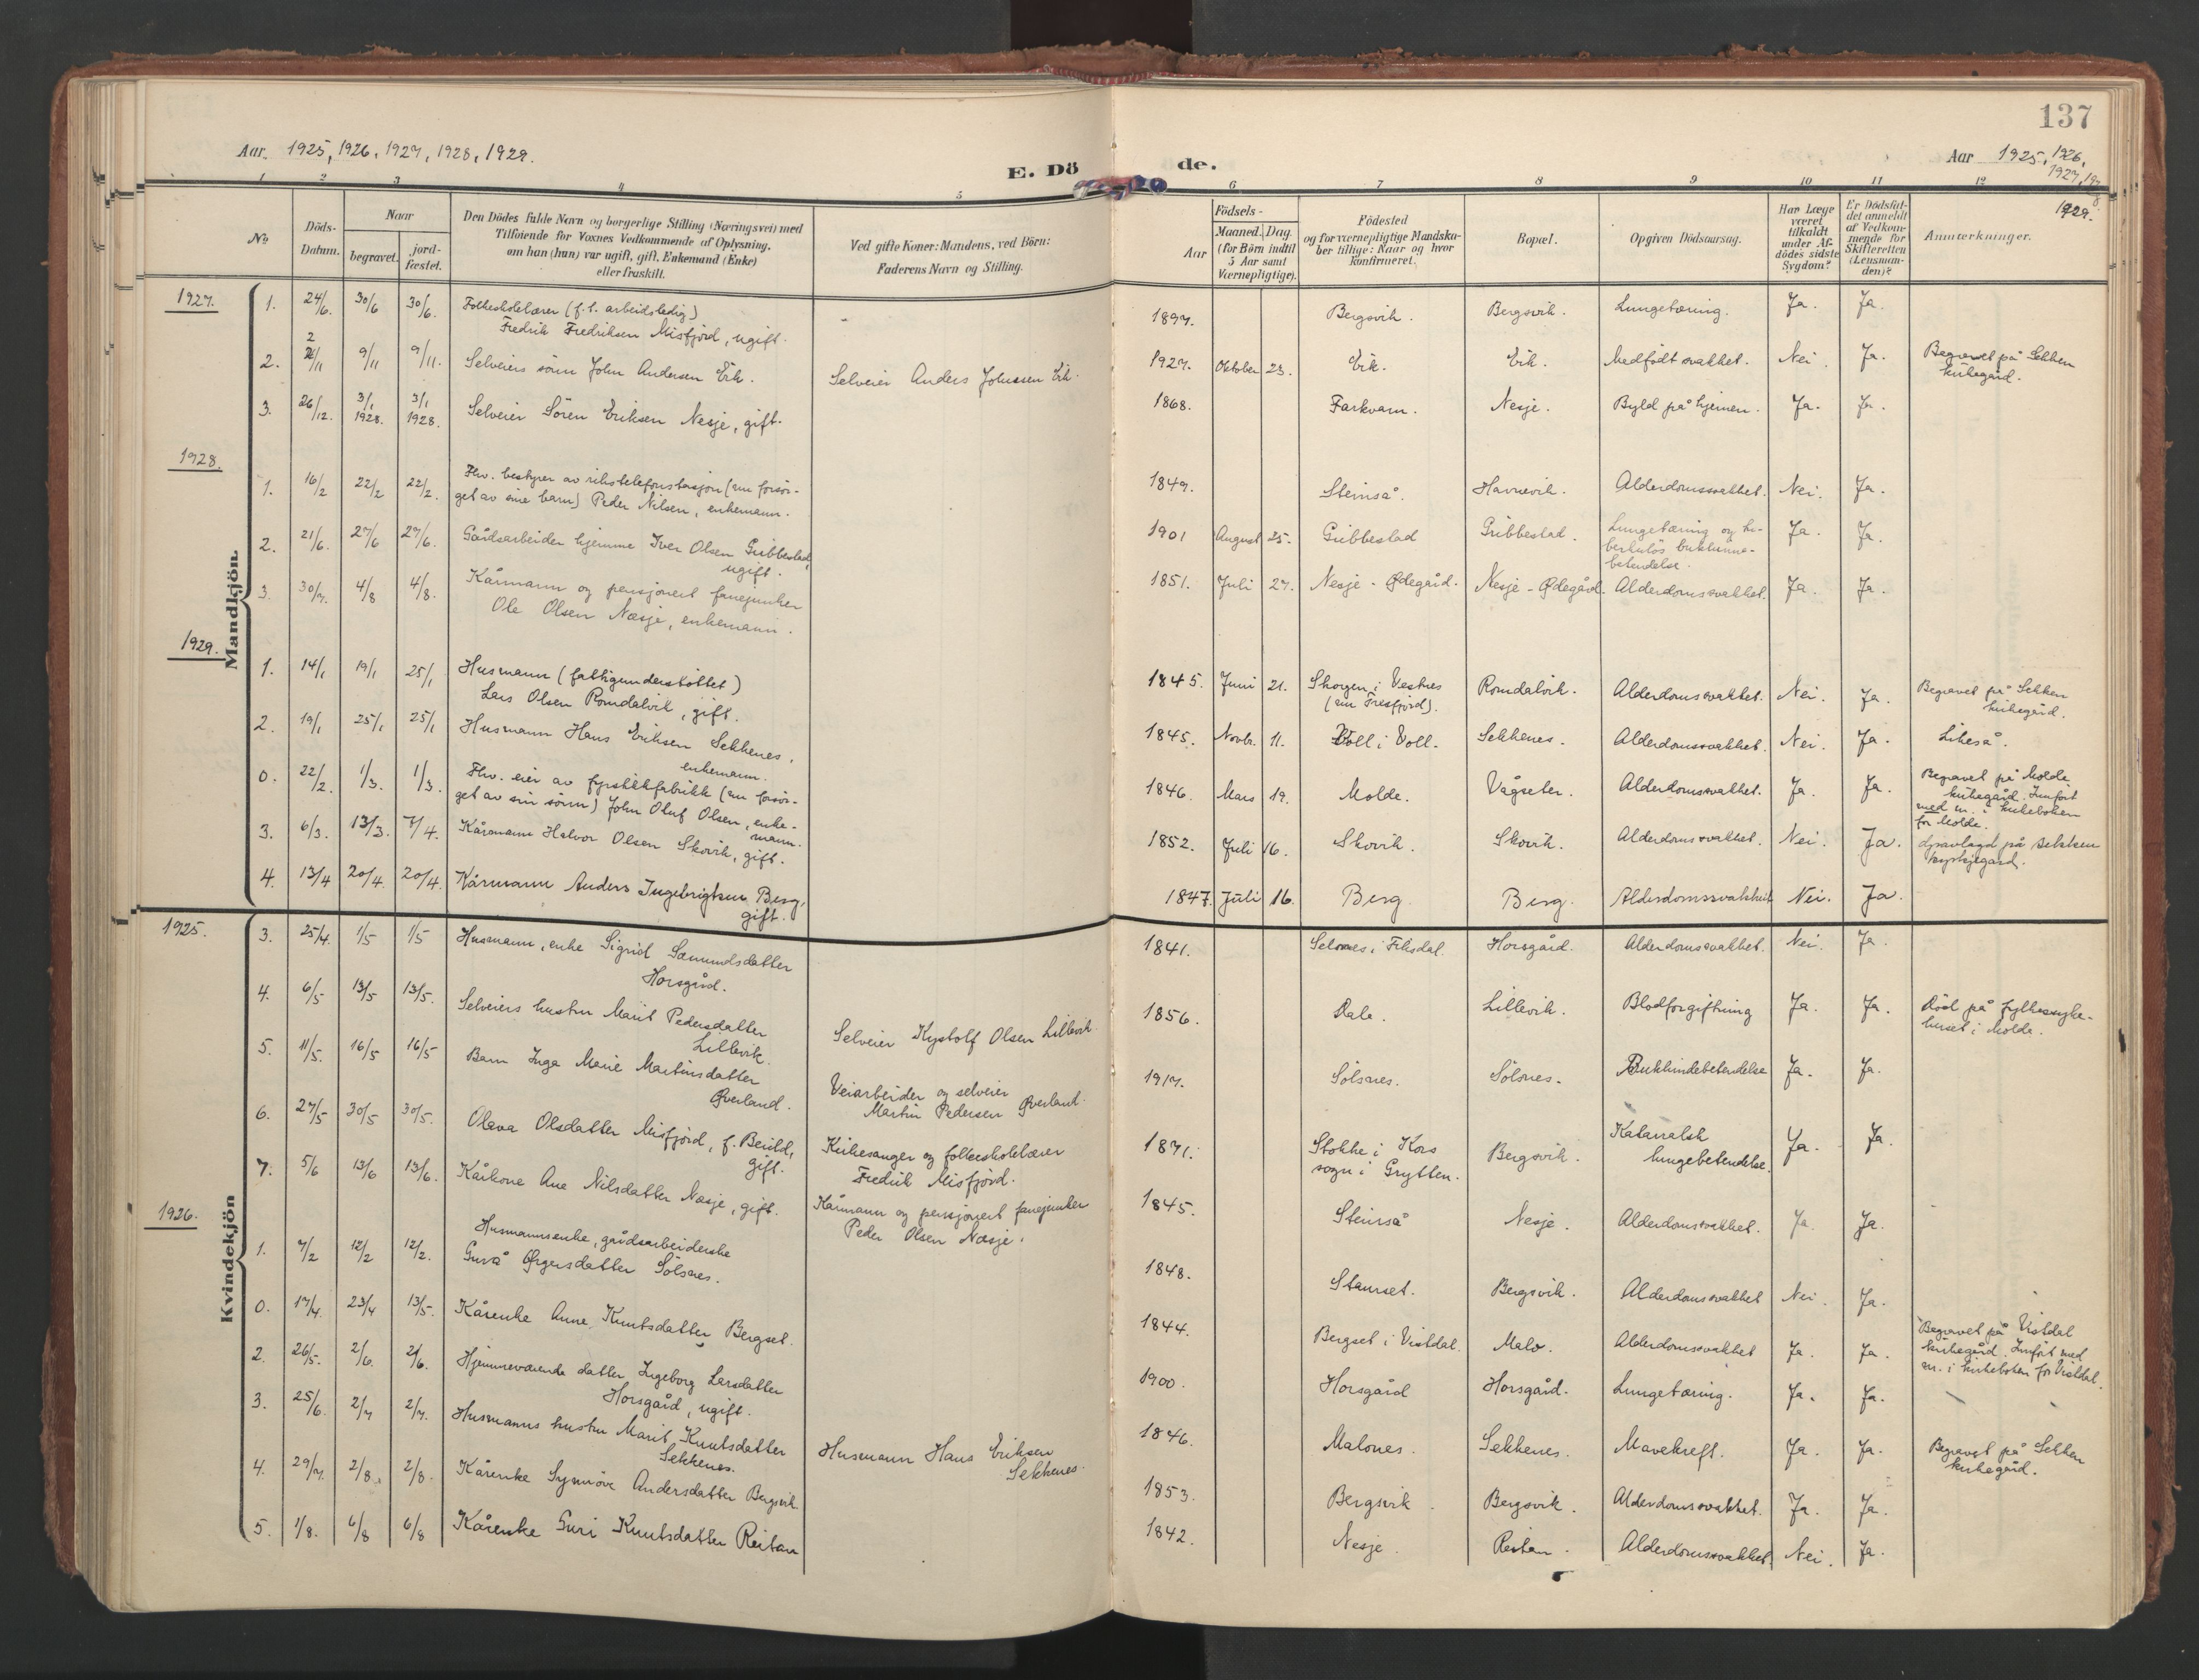 137
Aar. 1925, 1926, 1927, 1928, 1929.
E. Dö de.
Aar 1925, 1926,
1927, 1928
1929.
1 2 3 4 5 6 7 8 9 10 11 12
No
Döds-
Datum.
Naar
begravet.
jord-
fæstet.
Den Dödes fulde Navn og borgerlige Stilling (Næringsvei) med
Tilföiende for Voxnes Vedkommende af Oplysning,
om han (hun) var ugift, gift, Enkemand (Enke)
eller fraskilt.
Ved gifte Koner: Mandens, ved Börn:
Faderens Navn og Stilling.
Aar
Födsels-
Maaned. Dag.
(for Börn indtil
5 Aar samt
Værnepligtige).
Födested
og for værnepligtige Mandska-
ber tillige: Naar og hvor
konfirmeret.
Bopæl.
Opgiven Dödsaarsag.
Har Læge
været
tilkaldt
under Af-
dödes sidste
Sygdom?
Er Dödsfal-
det anmeldt
af Vedkom-
mende for
Skifteretten
(Lensman-
den)?
Anmærkninger.
Mandkjön.
1927.
1. 24/6. 30/6 30/6. Folkeskolelærer (f.t. arbeidsledig)
Fredrik Fredriksen Misfjord, ugift. 1897. Bergsvik. Bergsvik. Lungetæring. Ja. Ja.
2. 2/11 9/11 9/11. Selveiers sönn John Andersen Eik. Selveier Anders Johnssen Eik. 1927. Oktober 23. Eik. Eik. Medfödt svakhet. Nei. Ja. Begravet på Sekken
kirkegård.
3. 26/12. 3/1 1928. 3/1 1928. Selveier Sören Eriksen Nesje, gift. 1868. Farkvam. Nesje. Byld på hjernen. Ja. Ja.
1928.
1. 16/2 22/2 22/2. Fhv. bestyrer av rikstelefonstasjon (nu forsör-
get av sine barn) Peder Nilsen, enkemann. 1849. Steinså. Havnevik. Alderdomssvakhet. Nei. Ja.
2. 21/6. 27/6 27/6. Gårdsarbeider hjemme Iver Olsen Gribbestad,
ugift. 1901 August 25. Gribbestad Gribbestad. Lungetæring og tu-
berkulös bukhinne-
betendelse. Ja. Ja.
3. 30/7. 4/8 4/8. Kårmann og pensjonert fanejunker
Ole Olsen Næsje, enkemann. 1851. Juli 27. Nesje - Ødegård. Nesje - Ødegård. Alderdomssvakhet. Ja. Ja.
1929.
1. 14/1 19/1 25/1 Husmann (fattigunderstöttet)
Lars Olsen Romdalvik, gift. 1845. Juni 21. Skogen i Vestnes
(nu Tresfjord). Romdalvik. Alderdomssvakhet. Nei. Ja. Begravet på Sekken
kirkegård.
2. 19/1 25/1 25/1 Husmann Hans Eriksen Sekkenes,
enkemann. 1845. Novbr. 11. Voll i Voll. Sekkenes. Alderdomssvakhet. Nei. Ja. Likeså.
0. 22/2. 1/3. 1/3. Fhv. eier av fyrstikkfabrikk (nu forsör-
get av sin sönn) John Oluf Olsen, enke-
mann. 1846. Mars 19. Molde. Vågseter. Alderdomssvakhet. Ja. Ja. Begravet på Molde
kirkegård. Innfört
med nr. i kirkeboken
for Molde.
3. 6/3. 13/3. 7/4. Kårmann Halvor Olsen Skovik, gift. 1852. Juli 16. Skovik. Skovik. Alderdomssvakhet. Nei. Ja. på Sekken
kyrkjegard.
4. 13/4 20/4. 20/4. Kårmann Anders Ingebrigtsen Berg,
gift. 1847. Juli 16. Berg. Berg. Alderdomssvakheit Nei. Ja.
Kvindekjön
1925.
3. 25/4. 1/5 1/5 Husmann, enke Sigrid Sæmundsdatter
Horsgård. 1841. Selsnes i Fiksdal. Horsgård. Alderdomssvakhet. Nei. Ja.
4. 6/5 13/5 13/5. Selveiers hustru Marit Pedersdatter
Lillevik. Selveier Kystolf Olsen Lillevik. 1856. Dale. Lillevik. Blodforgiftning Ja. Ja. Död på fylkessyke-
huset i Molde.
5. 11/5. 16/5 16/5 Barn Inga Marie Martinsdatter
Øverland. Veiarbeider og selveier
Martin Pedersen Øverland. 1917. Sölsnes. Sölsnes. Bukhindebetendelse Ja. Ja.
6. 27/5 30/5 30/5. Olava Olsdatter Misfjord, f. Beuild,
gift. Kirkesanger og folkeskolelærer
Fredrik Misfjord. 1871. Stokke i Kors
sogn i Grytten. Bergsvik. Katarralsk
lungebetendelse. Ja. Ja.
7. 5/6 13/6 13/6. Kårkone Ane Nilsdatter Næsje, gift. Kårmann og pensjonert fanejunker
Peder Olsen Næsje. 1845. Steinså Nesje. Alderdomssvakhet. Ja. Ja.
1926.
1. 7/2 12/2 12/2. Husmannsenke, gårdsarbeiderske
Guru Ørgersdatter Sölsnes. 1848. Stamset. Bergsvik. Alderdomssvakhet Nei. Ja.
0. 17/4. 23/4 13/5. Kårenke Anne Knutsdatter Bergset. 1844. Bergset i Vistdal. Malo. Alderdomssvakhet Ja. Ja. Begravet på Vistdal
kirkegård. Innfört med
nr. i kirkeboken for Vistdal.
2. 26/5. 2/6. 2/6. Hjemmeværende datter Ingeborg Larsdatter
Horsgård, ugift. 1900. Horsgård Horsgård. Lungetæring. Ja. Ja.
3. 25/6. 2/7 2/7. Husmanns hustru Marit Knutsdatter
Sekkenes. Husmann Hans Eriksen
Sekkenes. 1846. Malones. Sekkenes. Mavekreft. Ja. Ja. Begravet på Sekken
kirkegård.
4. 29/7. 2/8. 2/8. Kårenke Synnöve Andersdatter Bergsvik 1853. Bergsvik. Bergsvik. Alderdomssvakhet. Ja. Ja.
5. 1/8. 6/8 6/8 Kårenke Guri Knutsdatter Reitan 1842. Nesje. Reitan. Alderdomssvakhet. Nei. Ja.